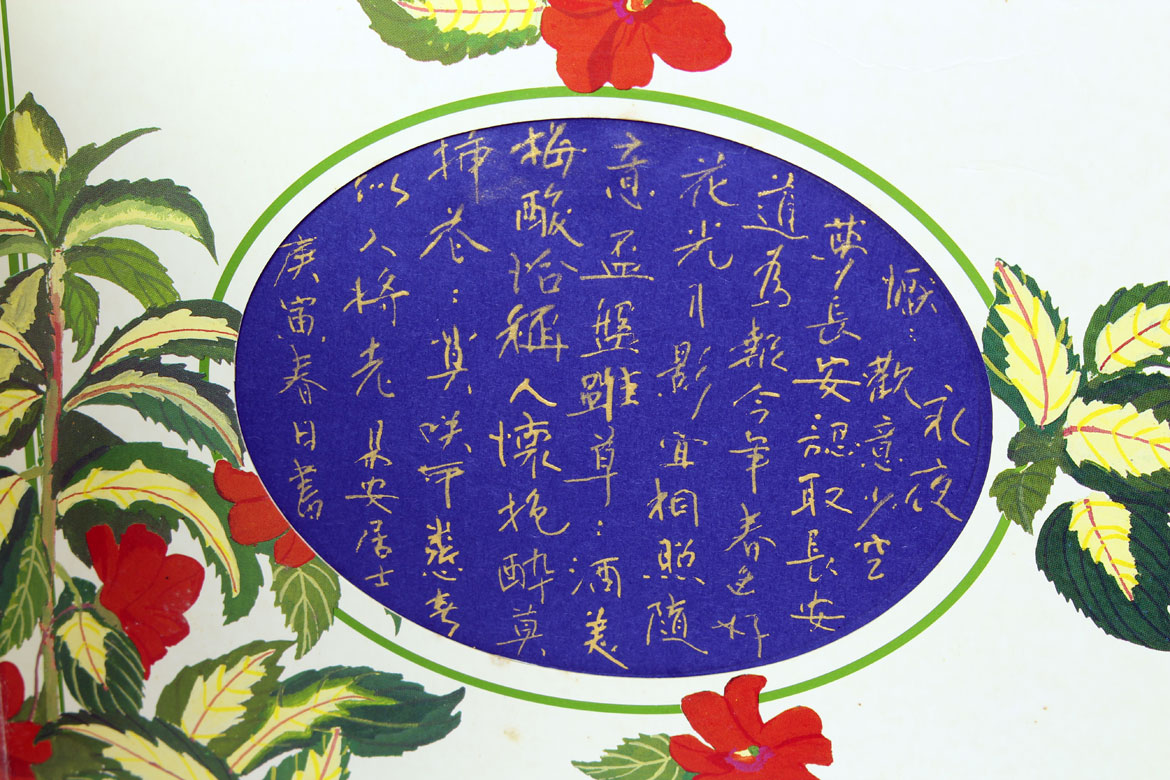 永夜
懨：歡意少空
夢長安認取長安
道為報今年春色好
花光月影宜相照隨
意盃盤雖草：酒美
梅酸恰稱人懷抱醉莫
插花：莫咲可憐春
似人將老 易安居士
庚寅春日書